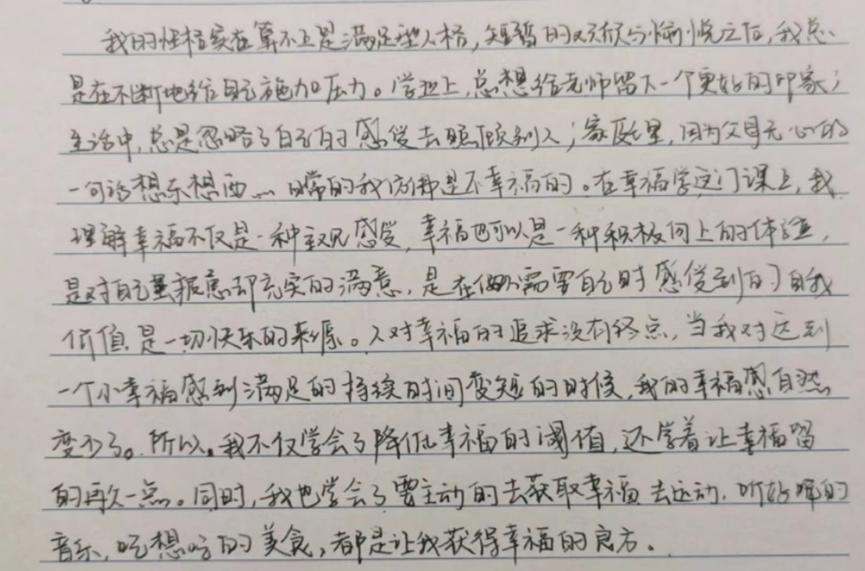 我的性格实在算不上是满足型人格,短暂的欢欣与愉悦之后,我总
是在不断地给自己施加压力。学业上,总想给老师留下一个更好的印象;
生活中,总是忽略了自己的感受去照顾别人;家庭里,因为父母无心的
一句话想东想西… 日常的我仿佛都是不幸福的。在幸福学这门课上,我
理解幸福不仅是一种主观感受,幸福也可以是一种积极向上的体验,
是对自己疲惫却充实的满意,是在他人需要自己时感受到的自我
价值,是一切快乐的来源。人对幸福的追求没有终点,当我对达到
一个小幸福感到满足的持续时间变短的时候,我的幸福感自然
变少了。所以,我不仅学会了降低幸福的阈值,还学着让幸福留
的再久一点。同时,我也学会了要主动的去获取幸福,去运动,听好听的
音乐,吃想吃的美食,都是让我获得幸福的良方。